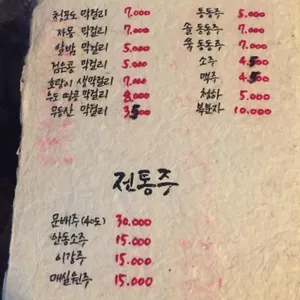 청포도 막걸리 7,000
자몽 막걸리 7,000
알밤 막걸리 5,000
검은콩 막걸리 5,000
호랑이 생막걸리 7,000
우도 땅콩 막걸리 8,000
무등산 막걸리 3500
동동주 5.000
솔 동동주 7.000
쑥 동동주 7.000
소주 4500
맥주 4500
청하 5.000
복분자 10.000
전통주
문배주 (40도) 30.000
안동소주 15.000
이강주 15.000
매실원주 15.000